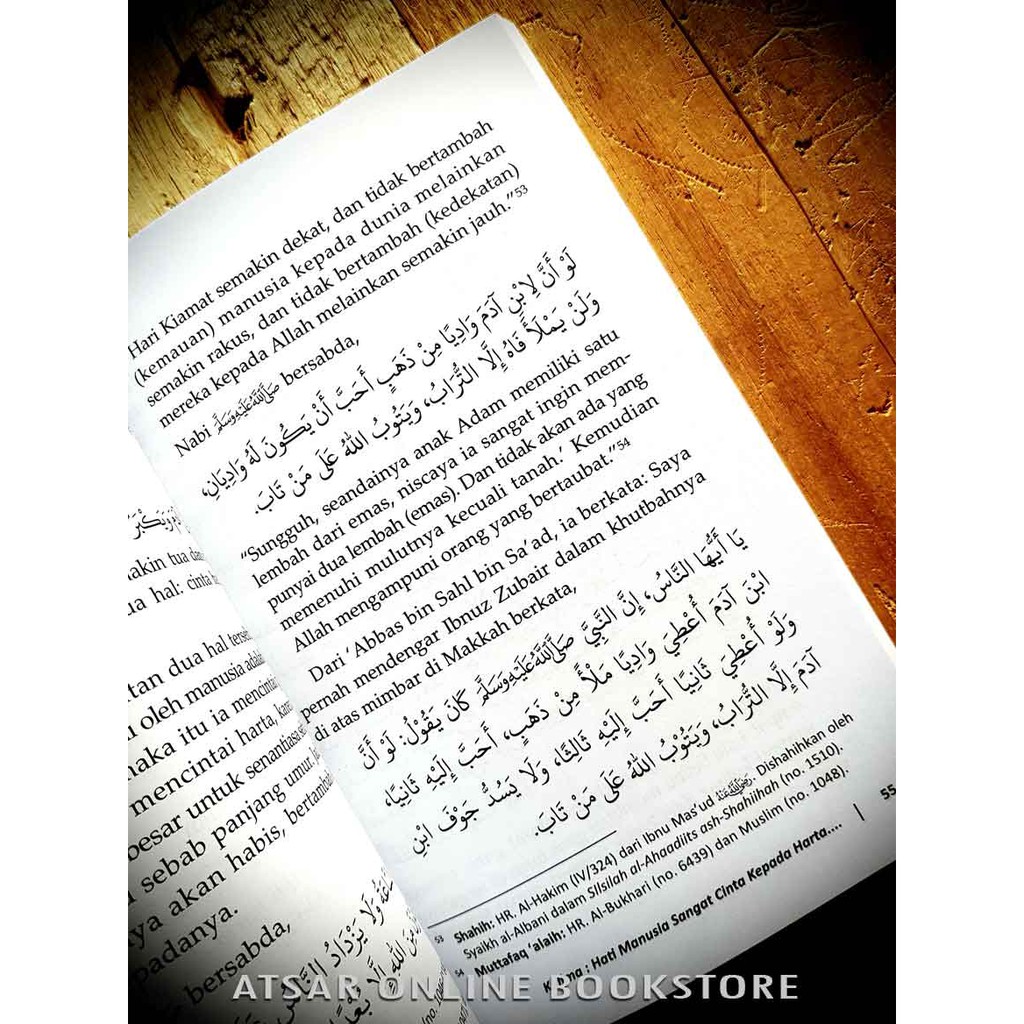 مُ وَيَكْبَرُ
makin tua dan
ua hal: cinta
tan dua hal terse
i oleh manusia adalah
maka itu ia mencintai
mencintai harta, kare
besar untuk senantiasa se
sebab panjang umur. Ja
nya akan habis, bertambah
padanya.
bersabda,
وَلَا يَزْدَادُ النَّاسُ
مِنَ اللهِ إِلَّا بُعْدًا
Hari Kiamat semakin dekat, dan tidak bertambah
(kemauan) manusia kepada dunia melainkan
semakin rakus, dan tidak bertambah (kedekatan)
mereka kepada Allah melainkan semakin jauh."53
Nabi صَلَّى اللَّهُ عَلَيْهِ وَسَلَّمَ bersabda,
لَوْ أَنَّ لِابْنِ آدَمَ وَادِيًا مِنْ ذَهَبٍ أَحَبَّ أَنْ يَكُوْنَ لَهُ وَادِيَانِ،
وَلَنْ يَمْلَأَ فَاهُ إِلَّا التُّرَابُ، وَيَتُوْبُ اللهُ عَلَى مَنْ تَابَ.
"Sungguh, seandainya anak Adam memiliki satu
lembah dari emas, niscaya ia sangat ingin mem-
punyai dua lembah (emas). Dan tidak akan ada yang
memenuhi mulutnya kecuali tanah.' Kemudian
Allah mengampuni orang yang bertaubat."54
Dari 'Abbas bin Sahl bin Sa'ad, ia berkata: Saya
pernah mendengar Ibnuz Zubair dalam khutbahnya
di atas mimbar di Makkah berkata,
يَا أَيُّهَا النَّاسُ، إِنَّ النَّبِيَّ صَلَّى اللَّهُ عَلَيْهِ وَسَلَّمَ كَانَ يَقُوْلُ: لَوْ أَنَّ
ابْنَ آدَمَ أُعْطِيَ وَادِيًا مَلْأً مِنْ ذَهَبٍ، أَحَبَّ إِلَيْهِ ثَانِيًا،
وَلَوْ أُعْطِيَ ثَانِيًا أَحَبَّ إِلَيْهِ ثَالِثًا، وَلَا يَسُدُّ جَوْفَ ابْنِ
آدَمَ إِلَّا التُّرَابُ، وَيَتُوْبُ اللهُ عَلَى مَنْ تَابَ.
53 Shahih: HR. Al-Hakim (IV/324) dari Ibnu Mas'ud رَضِيَ اللَّهُ عَنْهُ. Dishahihkan oleh
Syaikh al-Albani dalam Silsilah al-Ahaadiits ash-Shahiihah (no. 1510).
54 Muttafaq 'alaih: HR. Al-Bukhari (no. 6439) dan Muslim (no. 1048).
: Hati Manusia Sangat Cinta Kepada Harta.... | 55
ATSAR ONLINE BOOKSTORE